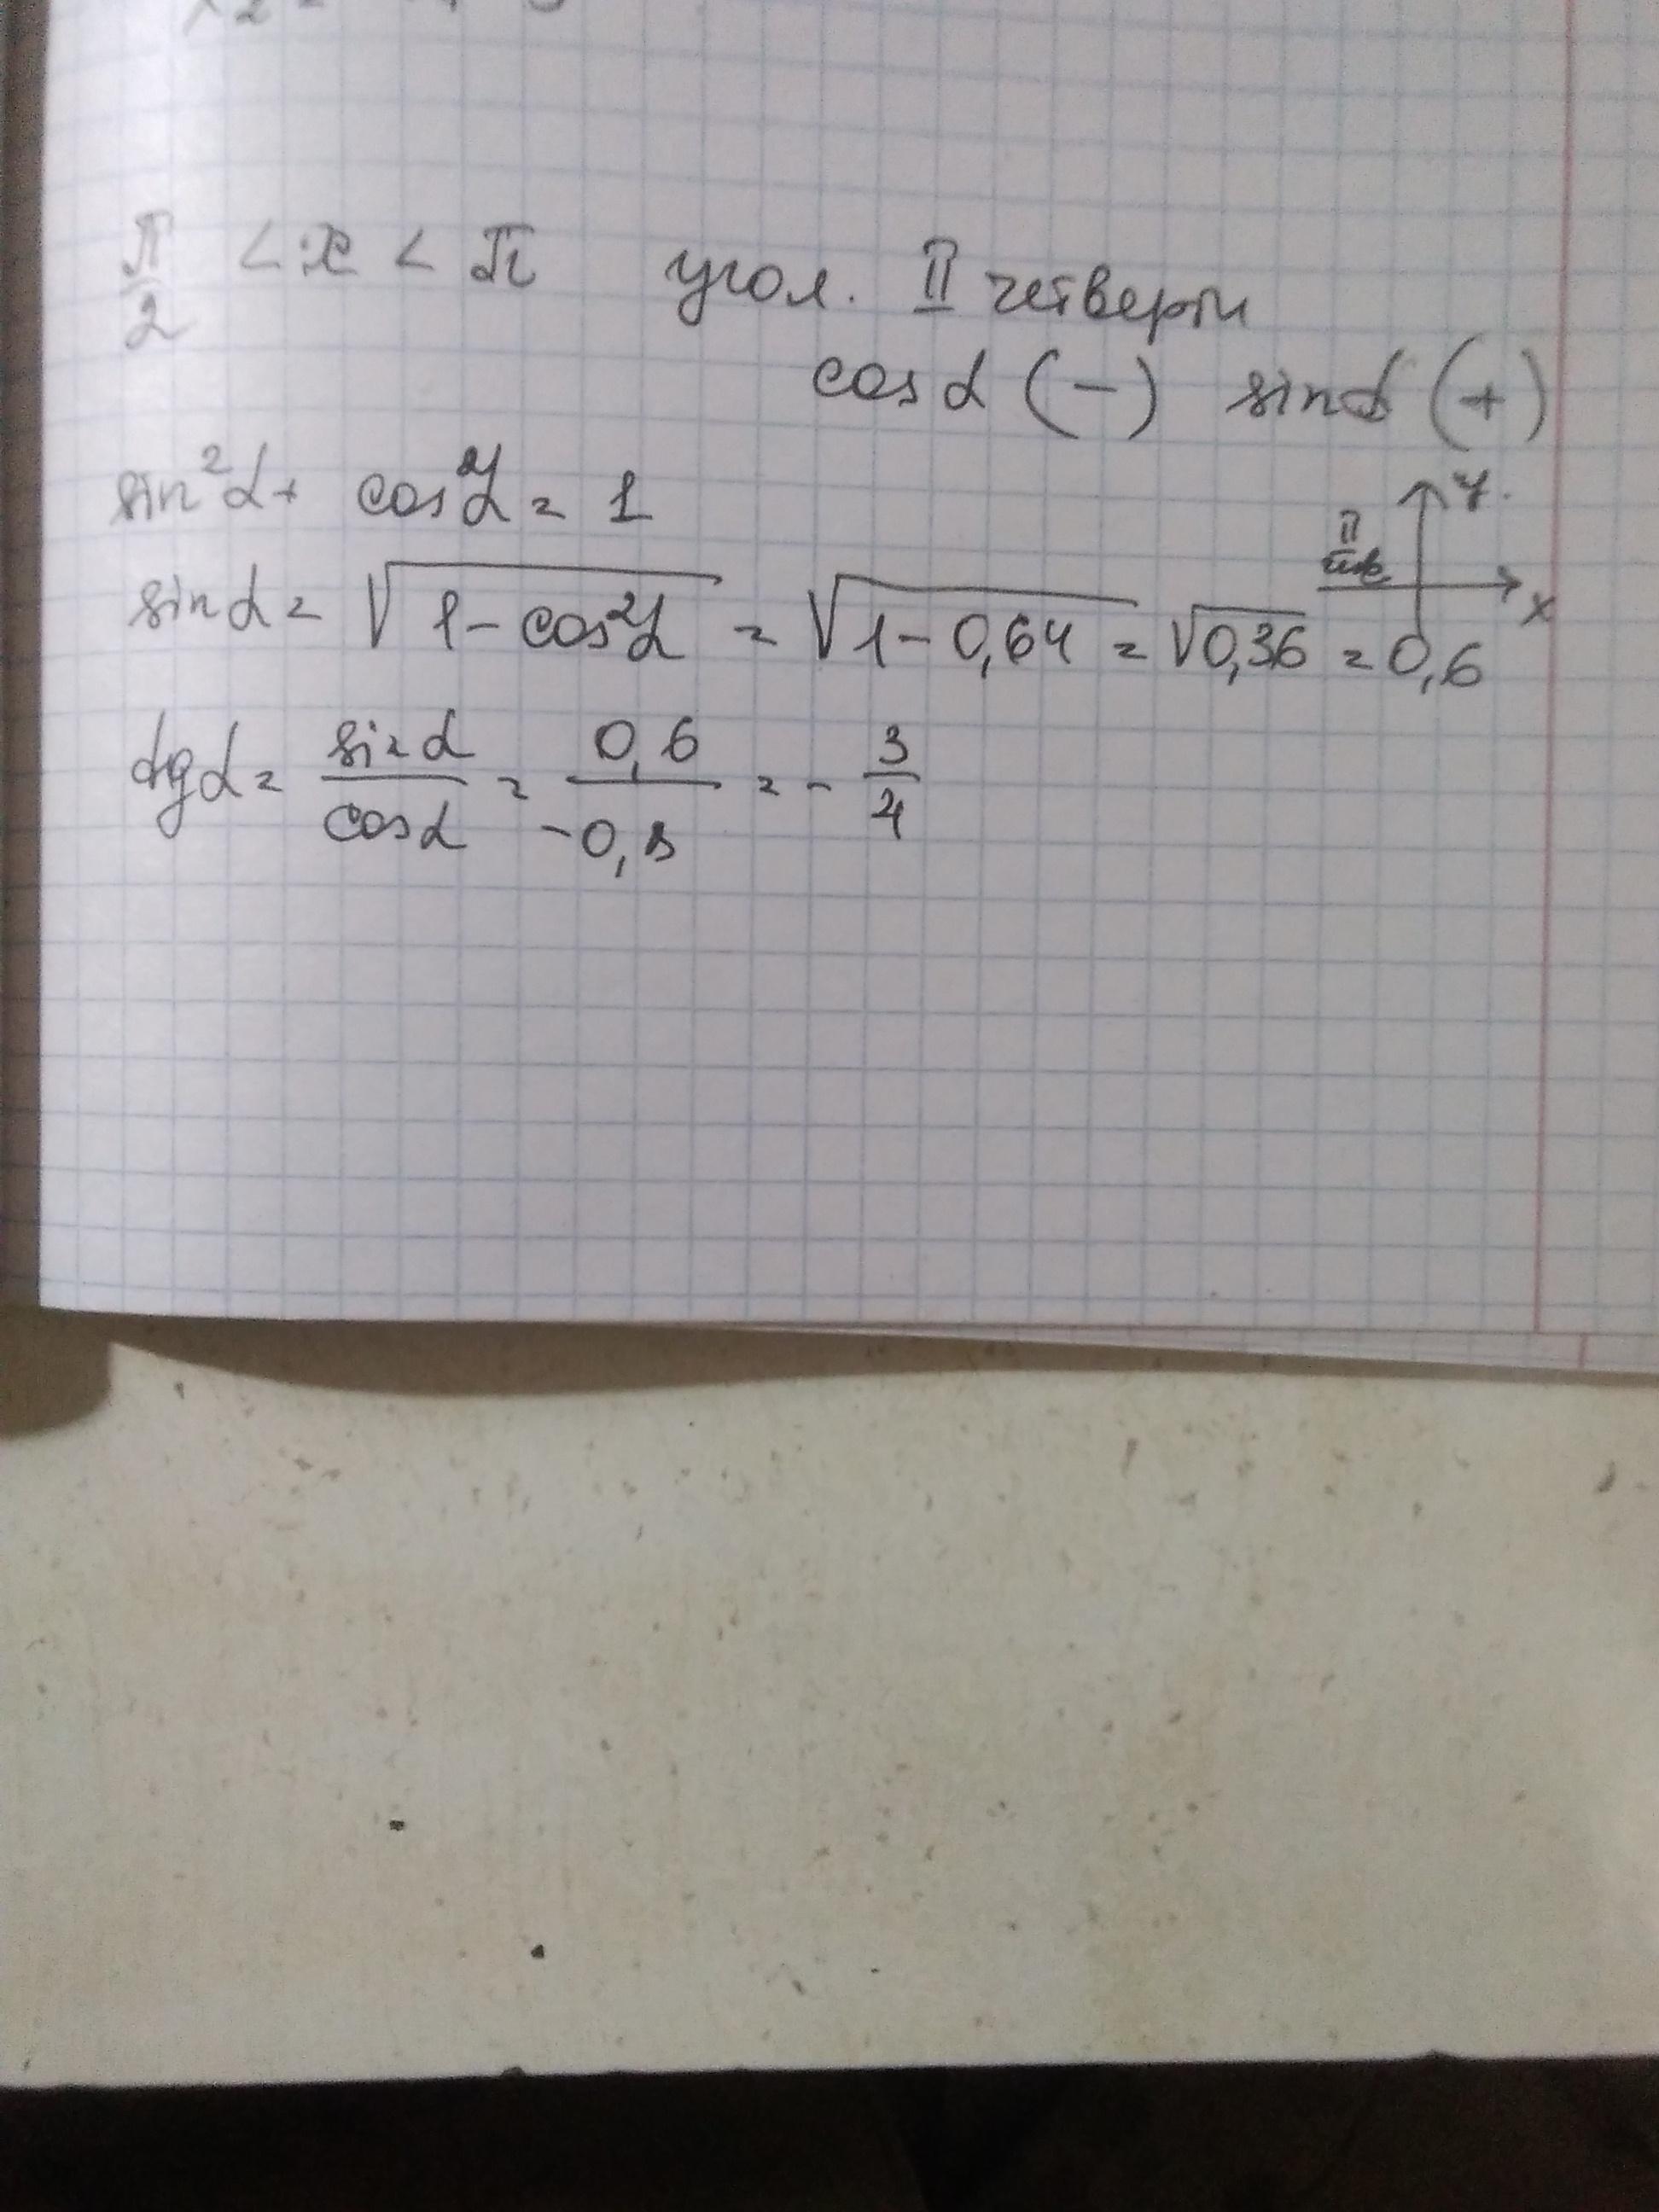 π/2 < x < π угол. II четверти
cos α (−) sin α (+)
sin²α + cos²α = 1
y.
II
x
sin α = √(1 − cos²α) = √(1 − 0,64) = √0,36 = 0,6
tg α = sin α / cos α = 0,6 / −0,8 = − 3/4